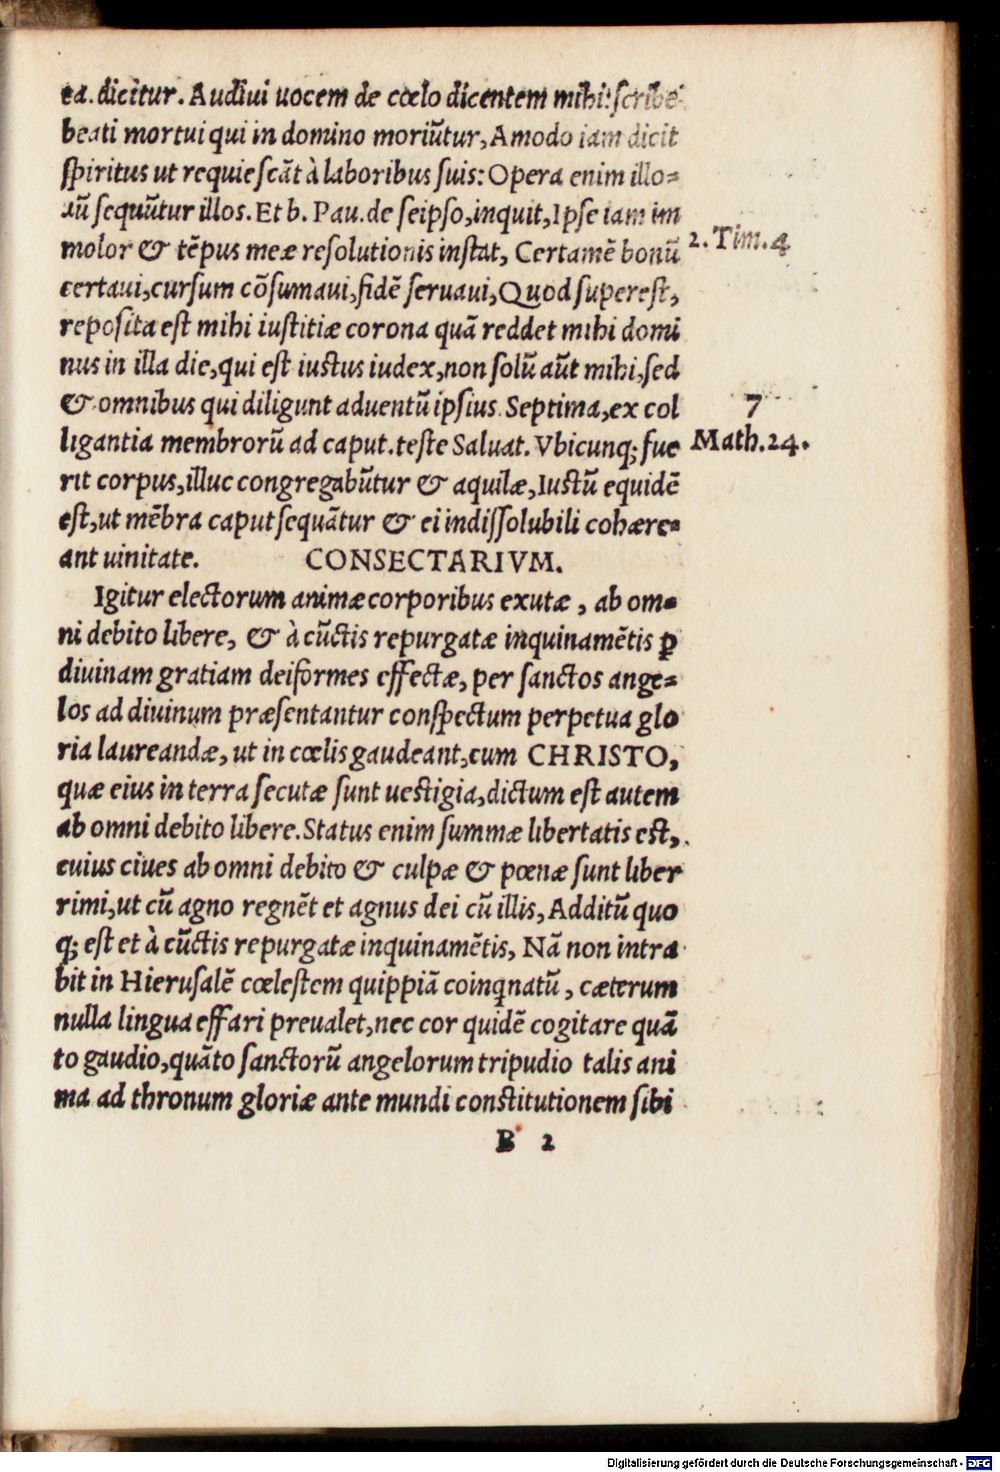 ea. dicitur. Audiui uocem de cœlo dicentem mihi: scribe
beati mortui qui in domino moriũtur, Amodo iam dicit
spiritus ut requiescãt à laboribus suis: Opera enim illo=
rũ sequũtur illos. Et b. Pau. de seipso, inquit, Ipse iam im
molor & tẽpus meæ resolutionis instat, Certamẽ bonũ
2. Tim. 4
certaui, cursum cõsumaui, fidẽ seruaui, Quod superest,
reposita est mihi iustitiæ corona quã reddet mihi domi
nus in illa die, qui est iustus iudex, non solũ aũt mihi, sed
& omnibus qui diligunt aduentũ ipsius. Septima, ex col
7
ligantia membrorũ ad caput. teste Saluat. Vbicunq; fue
Math. 24.
rit corpus, illuc congregabũtur & aquilæ, Iustũ equidẽ
est, ut mẽbra caput sequãtur & ei indissolubili cohære=
ant uinitate. CONSECTARIVM.
Igitur electorum animæ corporibus exutæ, ab om=
ni debito libere, & à cũctis repurgatæ inquinamẽtis ꝑ
diuinam gratiam deiformes effectæ, per sanctos ange=
los ad diuinum præsentantur conspectum perpetua glo
ria laureandæ, ut in cœlis gaudeant, cum CHRISTO,
quæ eius in terra secutæ sunt uestigia, dictum est autem
ab omni debito libere. Status enim summæ libertatis est,
cuius ciues ab omni debito & culpæ & pœnæ sunt liber
rimi, ut cũ agno regnẽt et agnus dei cũ illis, Additũ quo
q; est et à cũctis repurgatæ inquinamẽtis, Nã non intra
bit in Hierusalẽ cœlestem quippiã coinqnatũ, cæterum
nulla lingua effari preualet, nec cor quidẽ cogitare quã
to gaudio, quãto sanctorũ angelorum tripudio talis ani
ma ad thronum gloriæ ante mundi constitutionem sibi
B 2
Digitalisierung gefördert durch die Deutsche Forschungsgemeinschaft - DFG